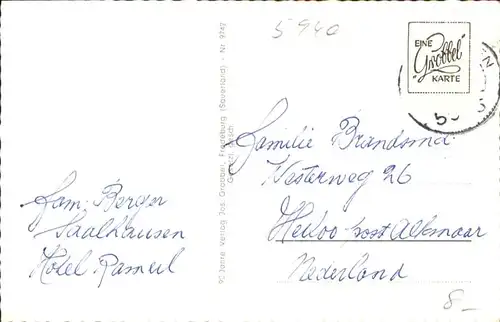 5940
EINE
"Grobbel"
KARTE
Familie Brandsma
Westerweg 26
Heiloo post Alkmaar
Nederland
Fam. Berger
Saalhausen
Hotel Rameil
90 Jahre Verlag Jos. Grobbel, Fredeburg (Sauerland) - Nr. 9742
8-